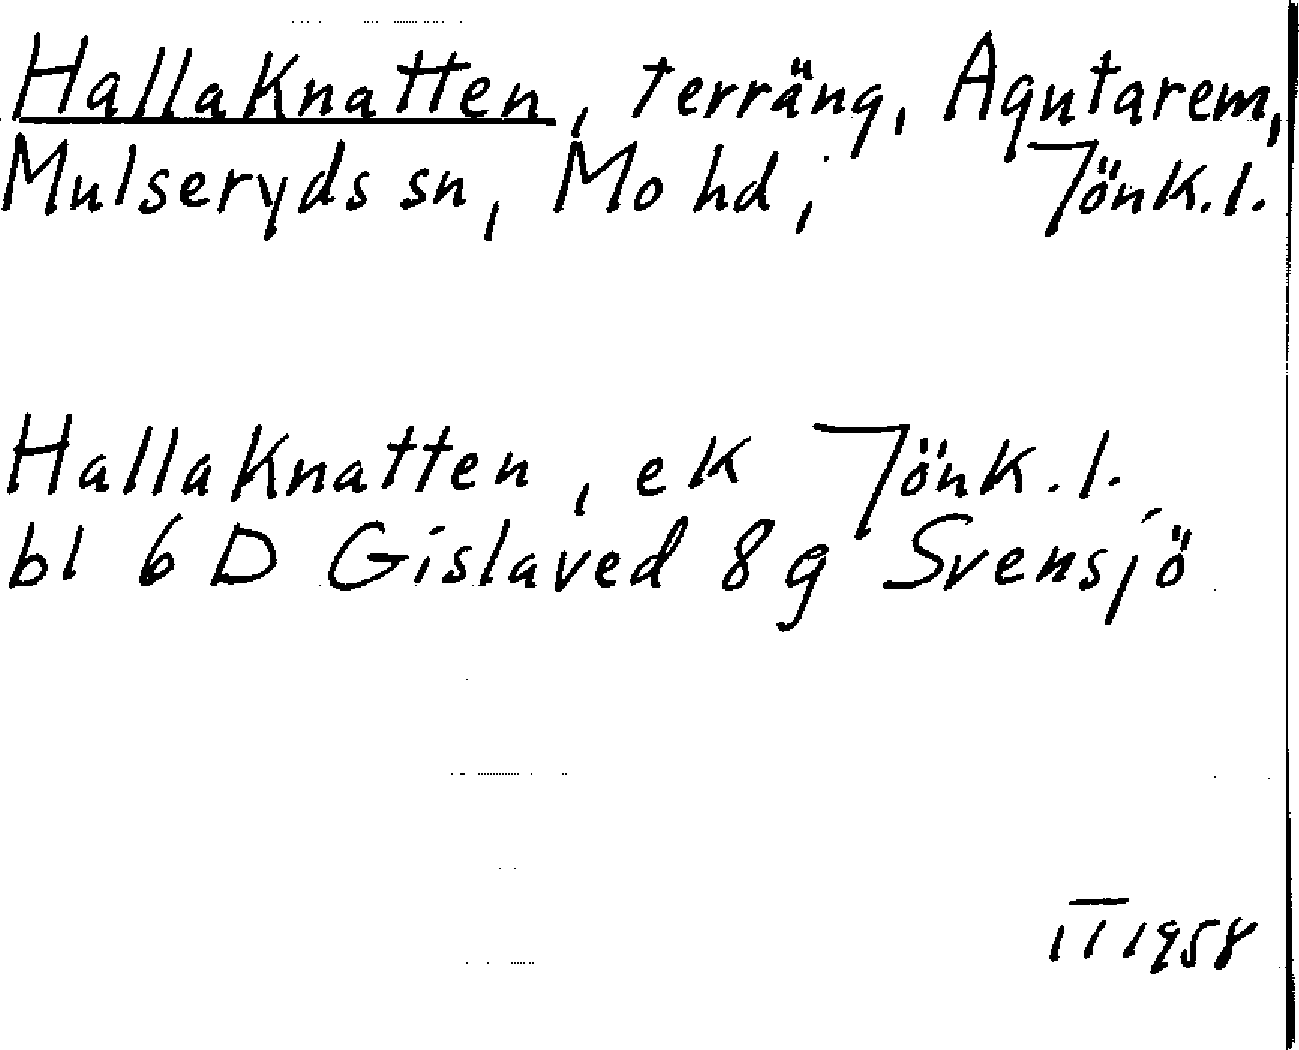 Hallaknatten, terräng, Agutarem,
Mulseryds sn, Mo hd, Jönk.l.
Hallaknatten, ek Jönk.l.
bl 6 D Gislaved 8 g Svensjö
1958